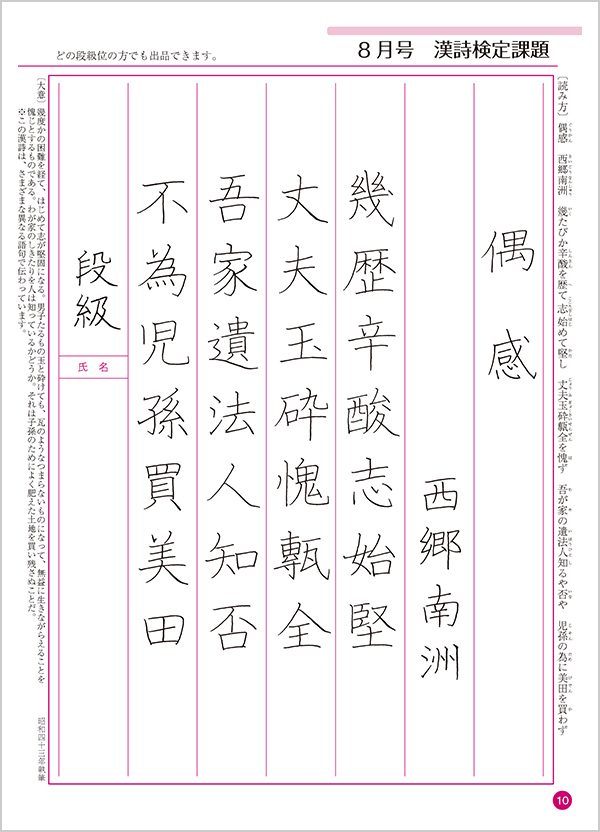 8月号　漢詩検定課題
どの段級位の方でも出品できます。
〔読み方〕　偶感　西郷南洲　幾たびか辛酸を歴て　志始めて堅し　丈夫玉砕甎全を愧ず　吾が家の遺法人知るや否や　児孫の為に美田を買わず
偶感
西郷南洲
幾歴辛酸志始堅
丈夫玉砕愧甎全
吾家遺法人知否
不為児孫買美田
段級
氏名
〔大意〕　幾度かの困難を経て、はじめて志が堅固になる。男子たるもの玉と砕けても、瓦のようなつまらないものになって、無益に生きながらえることを
愧じとするものである。わが家のしきたりを人は知っているかどうか。それは子孫のためによく肥えた土地を買い残さぬことだ。
※この漢詩は、さまざまな異なる語句で伝わっています。
昭和四十三年執筆
10